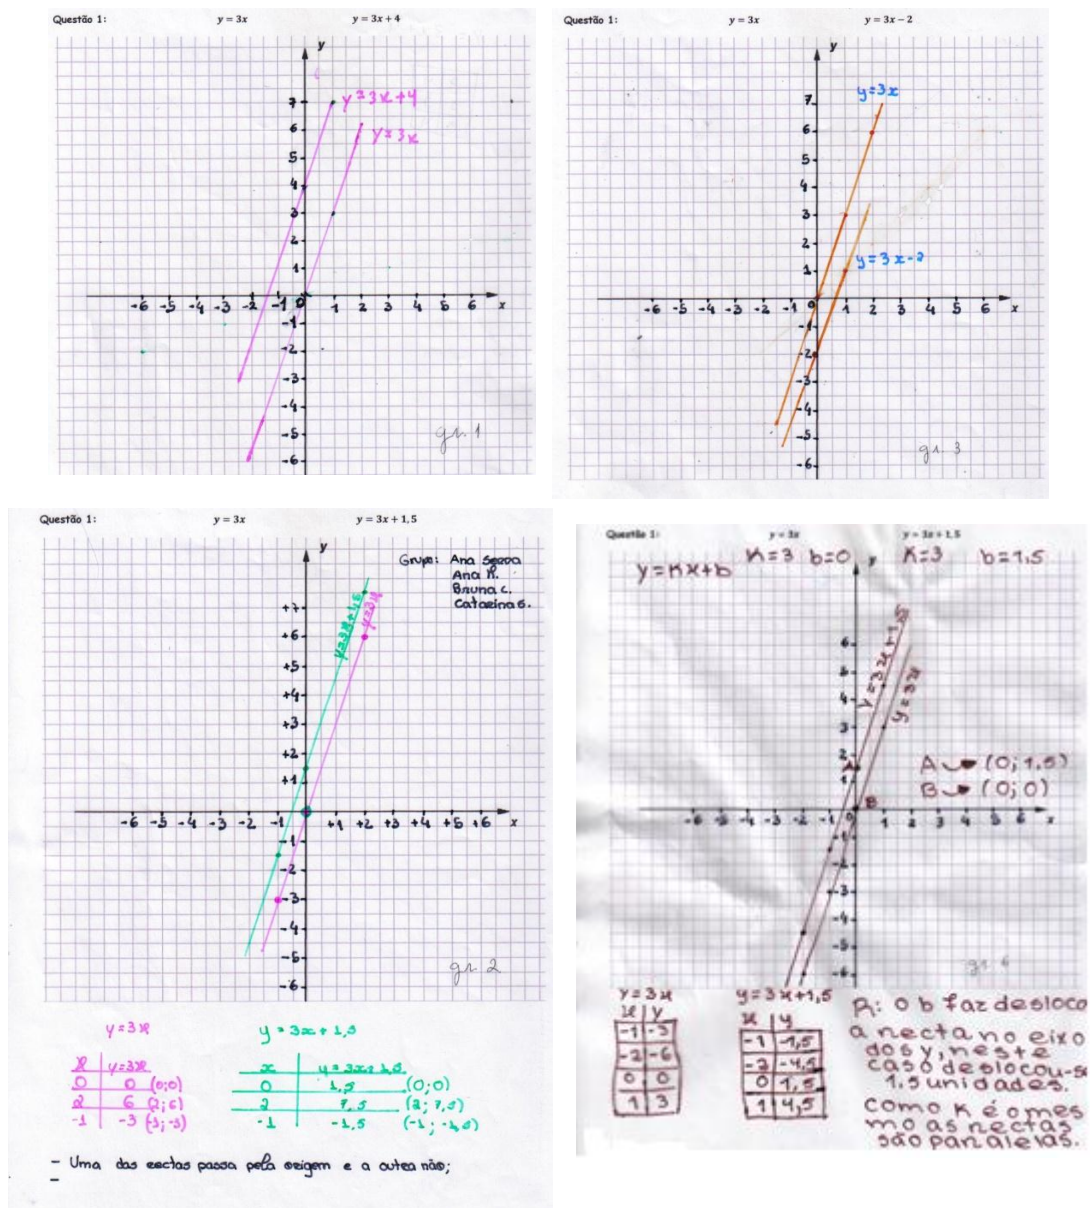 Questão 1: y = 3x y = 3x + 4
y
7
y = 3x+4
6
y = 3x
5
4
3
2
1
-6 -5 -4 -3 -2 -1 0 1 2 3 4 5 6 x
-1
-2
-3
-4
-5
-6
gr. 1
Questão 1: y = 3x y = 3x − 2
y
y = 3x
7
6
5
4
3
2
y = 3x-2
1
-6 -5 -4 -3 -2 -1 0 1 2 3 4 5 6 x
-1
-2
-3
-4
-5
-6
gr. 3
Questão 1: y = 3x y = 3x + 1,5
y
Grupo: Ana
Ana
Bruna C.
Catarina G.
y=3x+1,5
y=3x
+7
+6
+5
+4
+3
+2
+1
-6 -5 -4 -3 -2 -1 0 +1 +2 +3 +4 +5 +6 x
-1
-2
-3
-4
-5
-6
gr. 2
y = 3x
x y=3x
0 0 (0;0)
2 6 (2;6)
-1 -3 (-1;-3)
y = 3x + 1,5
x y = 3x+1,5
0 1,5 (0;0)
2 7,5 (2; 7,5)
-1 -1,5 (-1; -1,5)
- Uma das rectas passa pela origem e a outra não;
-
Questão 1: y = 3x y = 3x + 1,5
y=Kx+b K=3 b=0 y K=3 b=1,5
6
5
4
3
2
1
y=3x+1,5
y=3x
A
B
A (0; 1,5)
B (0; 0)
-6 -5 -4 -3 -2 -1 0 1 2 3 4 5 6 x
-1
-3
-4
-5
-6
y=3x
x y
-1 -3
-2 -6
0 0
1 3
y=3x+1,5
x y
-1 -1,5
-2 -4,5
0 1,5
1 4,5
R: O b faz desloca
a recta no eixo
dos y, neste
caso deslocou-s
1,5 unidades.
Como K é o mes
mo as rectas
são paralelas.